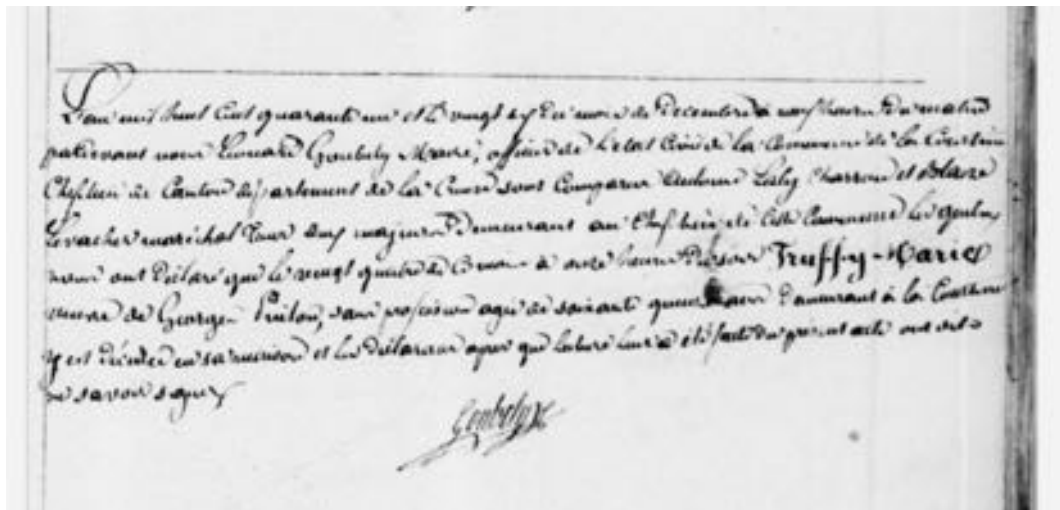 L'an mil huit cent quarante un et le vingt six du mois de Decembre à neuf heures du matin
pardevant nous Léonard Goubely Maire, officier de l'etat Civil de la Commune de la Courtine
Chef lieu de Canton département de la Creuse sont Comparus Antoine Charron et Blaise
Levacher maréchal tous deux majeurs demeurant au Chef lieu de cette Commune les quels
nous ont déclaré que le vingt quatre de ce mois à onze heures du soir Truffy Marie
veuve de Georges sans profession agée de soixante quinze ans demeurant à la Courtine
y est décédée en sa maison et les déclarans après que lecture leur a été faite du présent acte ont dit
ne savoir signer
Goubely